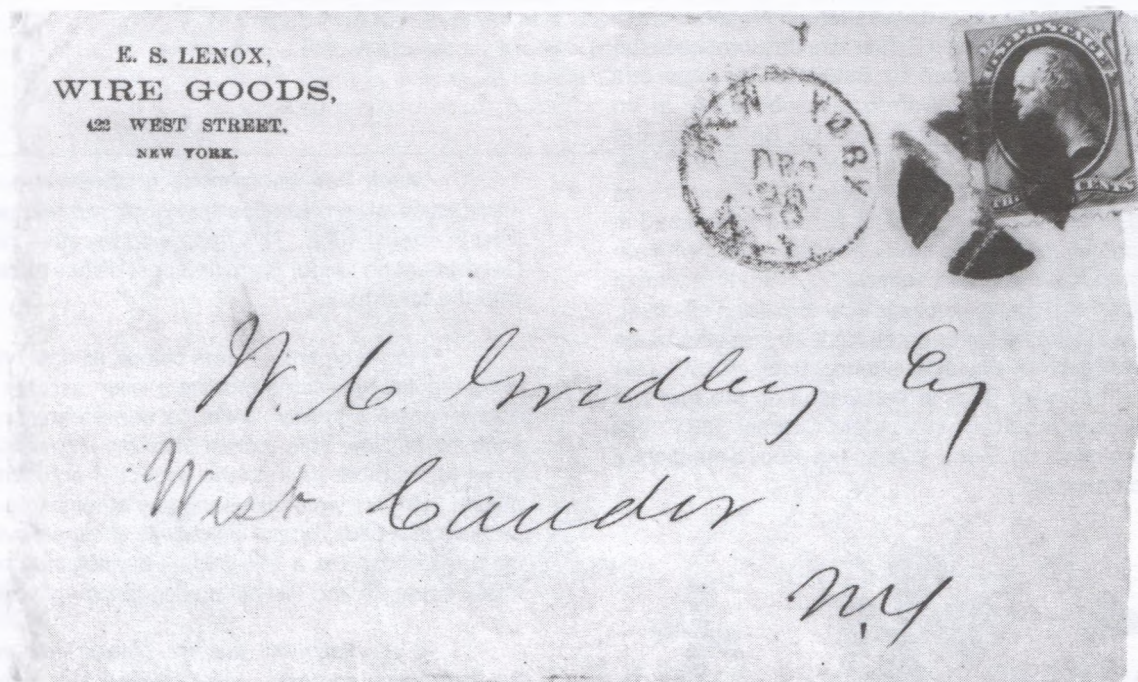 E. S. LENOX,
WIRE GOODS,
422 WEST STREET.
NEW YORK.
NEW YORK
DEC
28
U.S. POSTAGE
CENTS
W. C Gridley Esq
West Candor
N.Y